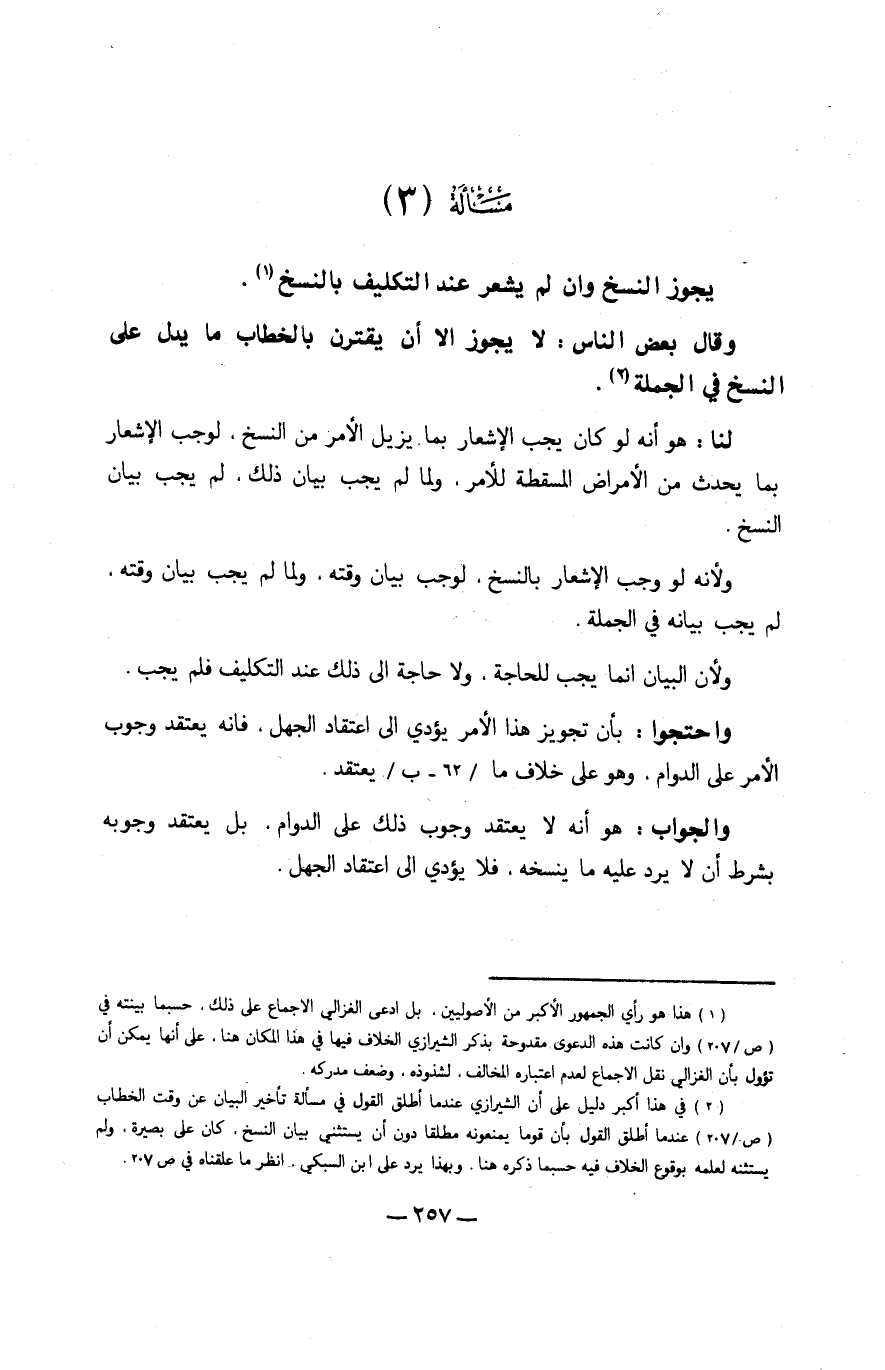 مسألة (٣)
يجوز النسخ وان لم يشعر عند التكليف بالنسخ(١) .
وقال بعض الناس : لا يجوز الا أن يقترن بالخطاب ما يدل على
النسخ في الجملة(٢) .
لنا : هو أنه لو كان يجب الإشعار بما يزيل الأمر من النسخ ، لوجب الإشعار
بما يحدث من الأمراض المسقطة للأمر ، ولما لم يجب بيان ذلك ، لم يجب بيان
النسخ .
ولأنه لو وجب الإشعار بالنسخ ، لوجب بيان وقته ، ولما لم يجب بيان وقته ،
لم يجب بيانه في الجملة .
ولأن البيان انما يجب للحاجة ، ولا حاجة الى ذلك عند التكليف فلم يجب .
واحتجوا : بأن تجويز هذا الأمر يؤدي الى اعتقاد الجهل ، فانه يعتقد وجوب
الأمر على الدوام ، وهو على خلاف ما / ٦٢ ـ ب / يعتقد .
والجواب : هو أنه لا يعتقد وجوب ذلك على الدوام ، بل يعتقد وجوبه
بشرط أن لا يرد عليه ما ينسخه ، فلا يؤدي الى اعتقاد الجهل .
( ١ ) هذا هو رأي الجمهور الأكبر من الأصوليين ، بل ادعى الغزالي الاجماع على ذلك ، حسبما بينته في
( ص / ٢٠٧ ) وان كانت هذه الدعوى مقدوحة بذكر الشيرازي الخلاف فيها في هذا المكان هنا ، على أنها يمكن أن
تؤول بأن الغزالي نقل الاجماع لعدم اعتباره المخالف ، لشذوذه ، وضعف مدركه .
( ٢ ) في هذا أكبر دليل على أن الشيرازي عندما أطلق القول في مسألة تأخير البيان عن وقت الخطاب
( ص / ٢٠٧ ) عندما أطلق القول بأن قوما يمنعونه مطلقا دون أن يستثني بيان النسخ ، كان على بصيرة ، ولم
يستثنه لعلمه بوقوع الخلاف فيه حسبما ذكره هنا . وبهذا يرد على ابن السبكي . انظر ما علقناه في ص ٢٠٧ .
— ٢٥٧ —